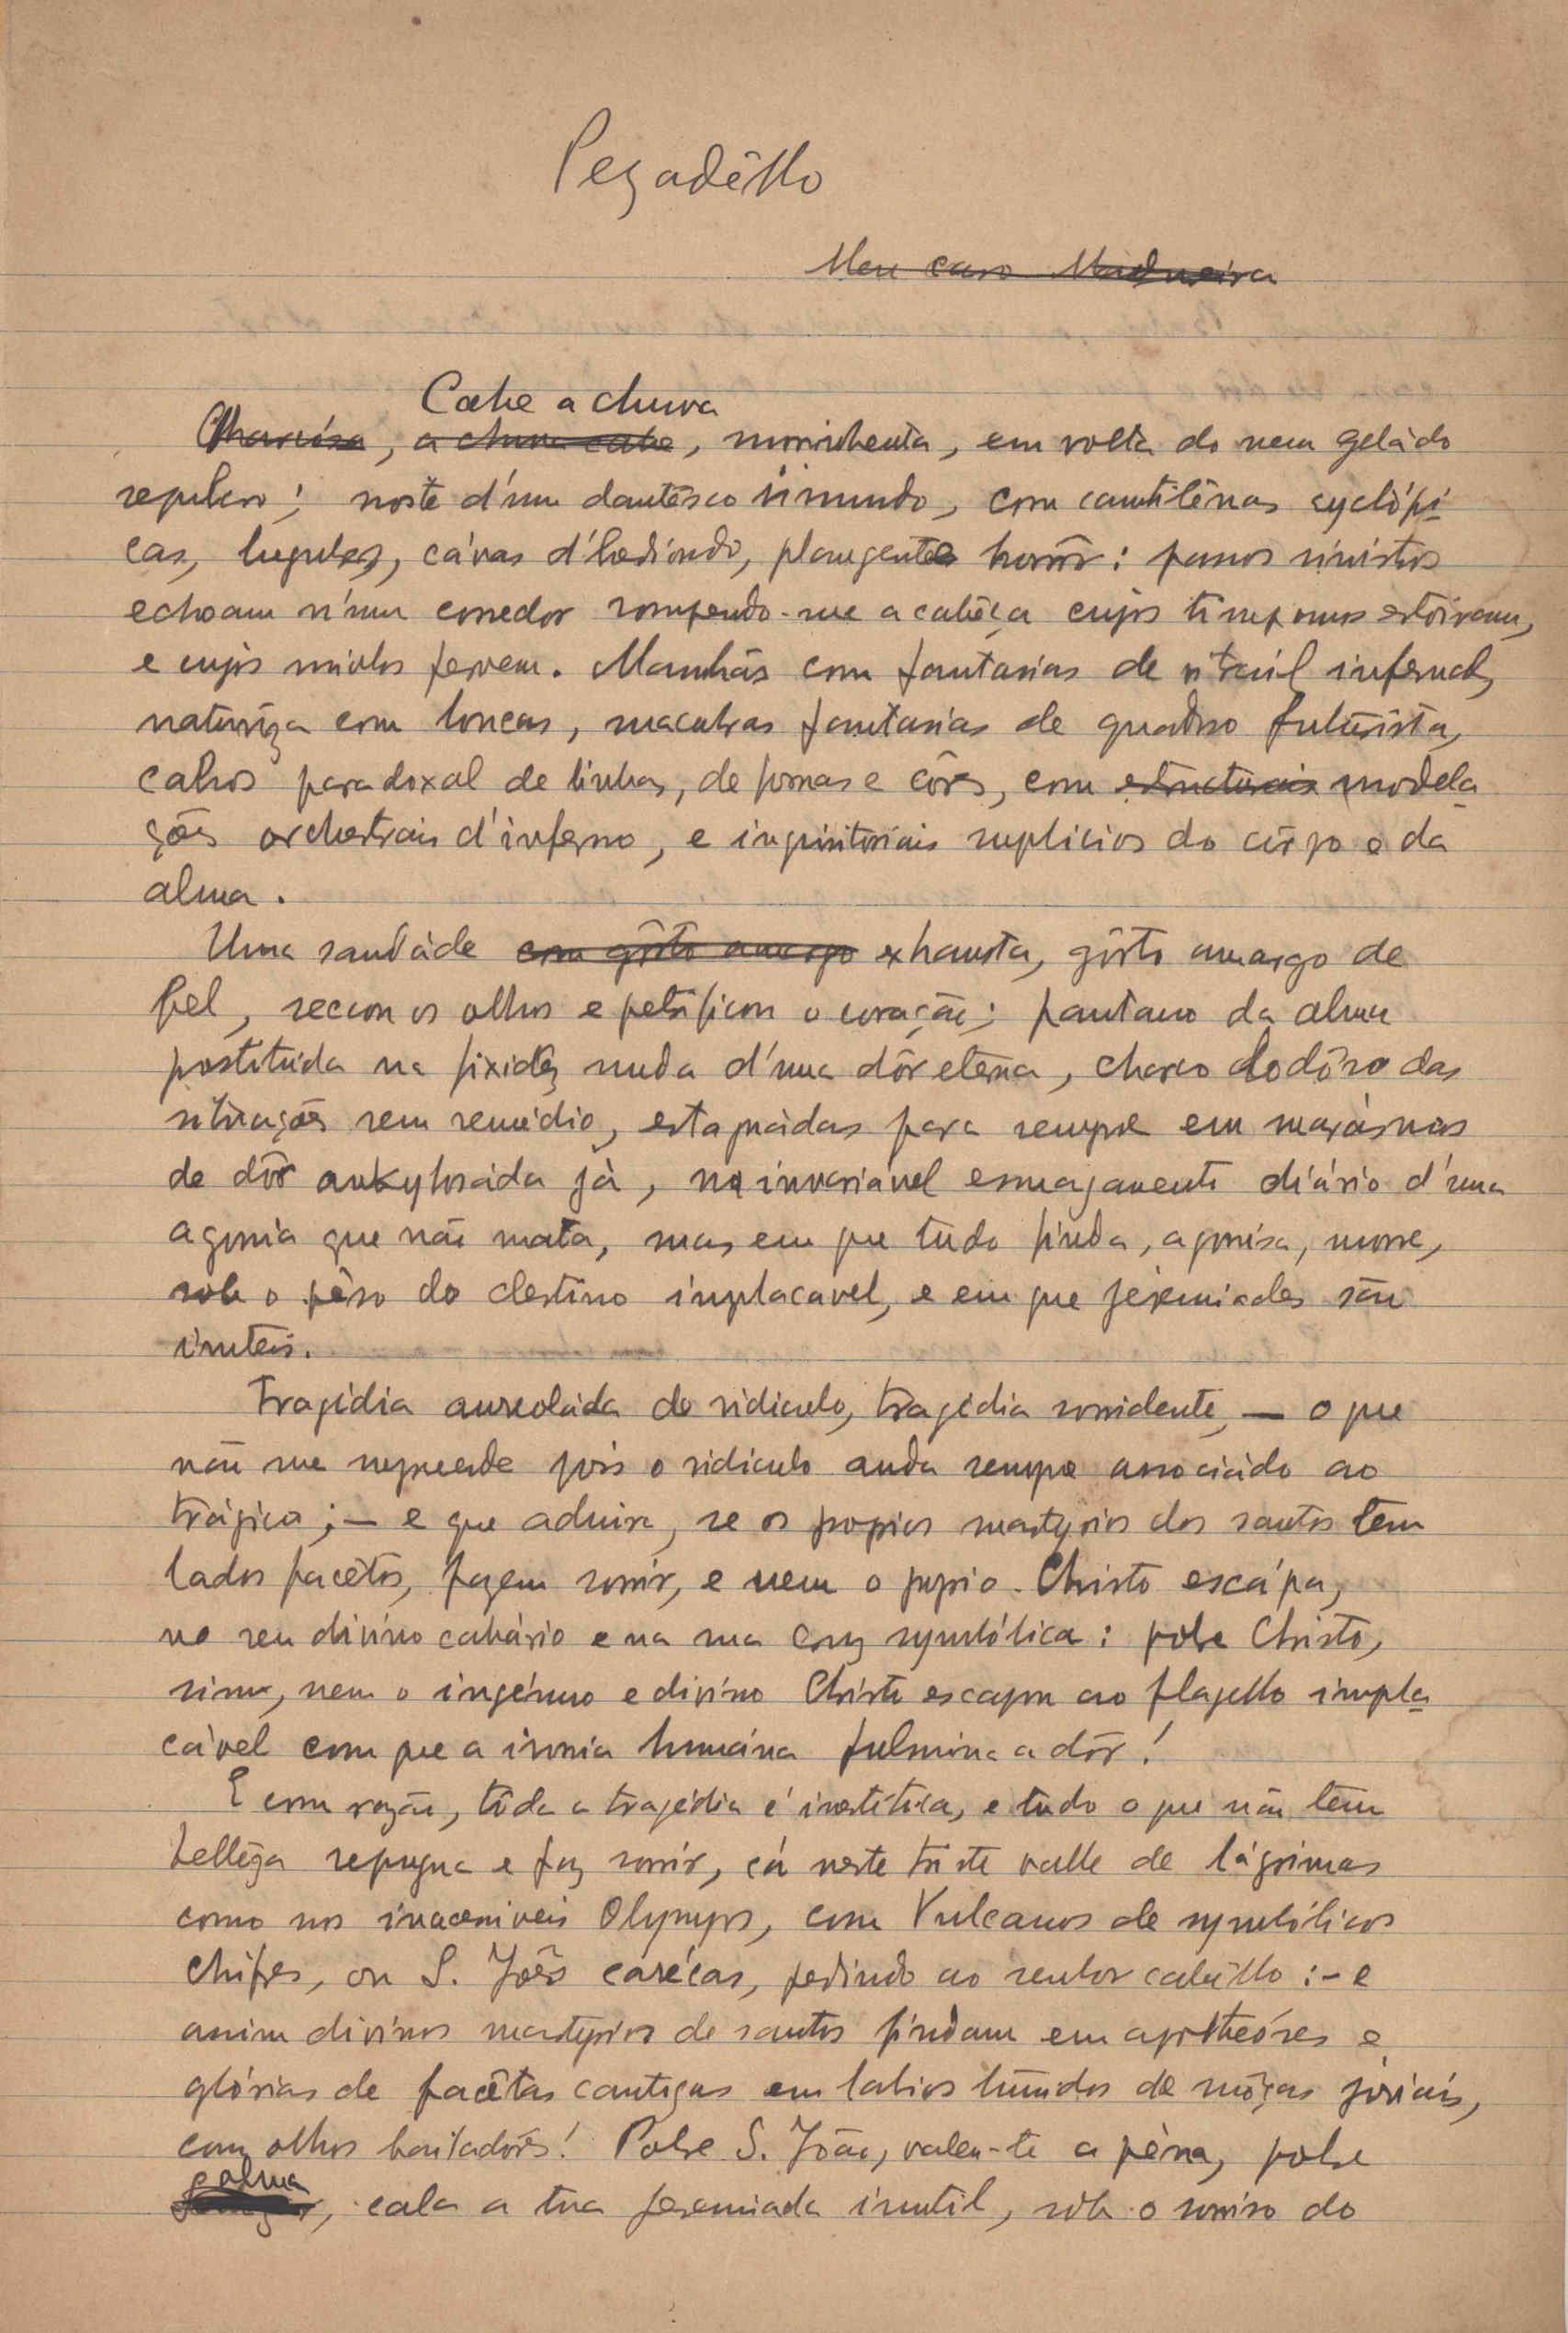 Pezadêllo
Meu caro Madureira
Cahe a chuva
a chuva cahe, morrinhenta, em volta do meu geládo
sepulcro; noite d'um dantêsco immundo, com cantilênas cyclópi-
cas, lugubres, cávas d'hediondo, plangente horrôr: passos sinistros
echoam n'um corredor rompendo-me a cabêça cujos tímpanos estoiram,
e cujos miolos fervem. Manhãs com fantasias de vitrail infernal,
naturêza com loucas, macabras fantasias de quadro futurista,
cahos paradoxal de linhas, de formas e côres, com estructurais modela
ções orchestrais d'inferno, e inquisitoriais suplicios do côrpo e da
alma.
Uma saudáde com gôsto amargo exhausta, gôsto amargo de
fel, seccou os olhos e petrificou o coração; pantano da alma
prostituida na fixidêz muda d'uma dôr eterna, charco lodôso das
situações sem remédio, estagnádas para sempre em marásmos
de dôr ankylosáda já, no invariável esmagamento diário d'uma
agonia que não mata, mas em que tudo finda, agonisa, morre,
sob o pêso do destino implacavel, e em que jeremiades são
inuteis.
Tragédia aureoláda do ridiculo, tragédia sorridente, — o que
não me surpreende pois o ridiculo anda sempre associádo ao
trágico; — e que admira, se os proprios martyrios dos santos tem
lados facêtos, fazem sorrir, e nem o proprio Christo escápa,
no seu divino calvário e na sua cruz symbólica: pobre Christo,
sim, nem o ingénuo e divino Christo escapou ao flagello impla
cável com que a ironia humána fulmina a dôr!
E com razão, tôda a tragédia é inestética, e tudo o que não tem
bellêza repugna e faz sorrir, cá neste triste valle de lágrimas
como nos inacessiveis Olympos, com Vulcanos de symbólicos
chifres, ou S. Joões carécas, pedindo ao senhor cabêllo: — e
assim divinos martyrios de santos findam em apotheóses e
glórias de facêtas cantigas em labios húmidos de môças joviais,
com olhos bailadôres! Pobre S. João, valeu-te a pêna, pobre
alma, cala a tua jeremiada inutil, sob o sorriso do